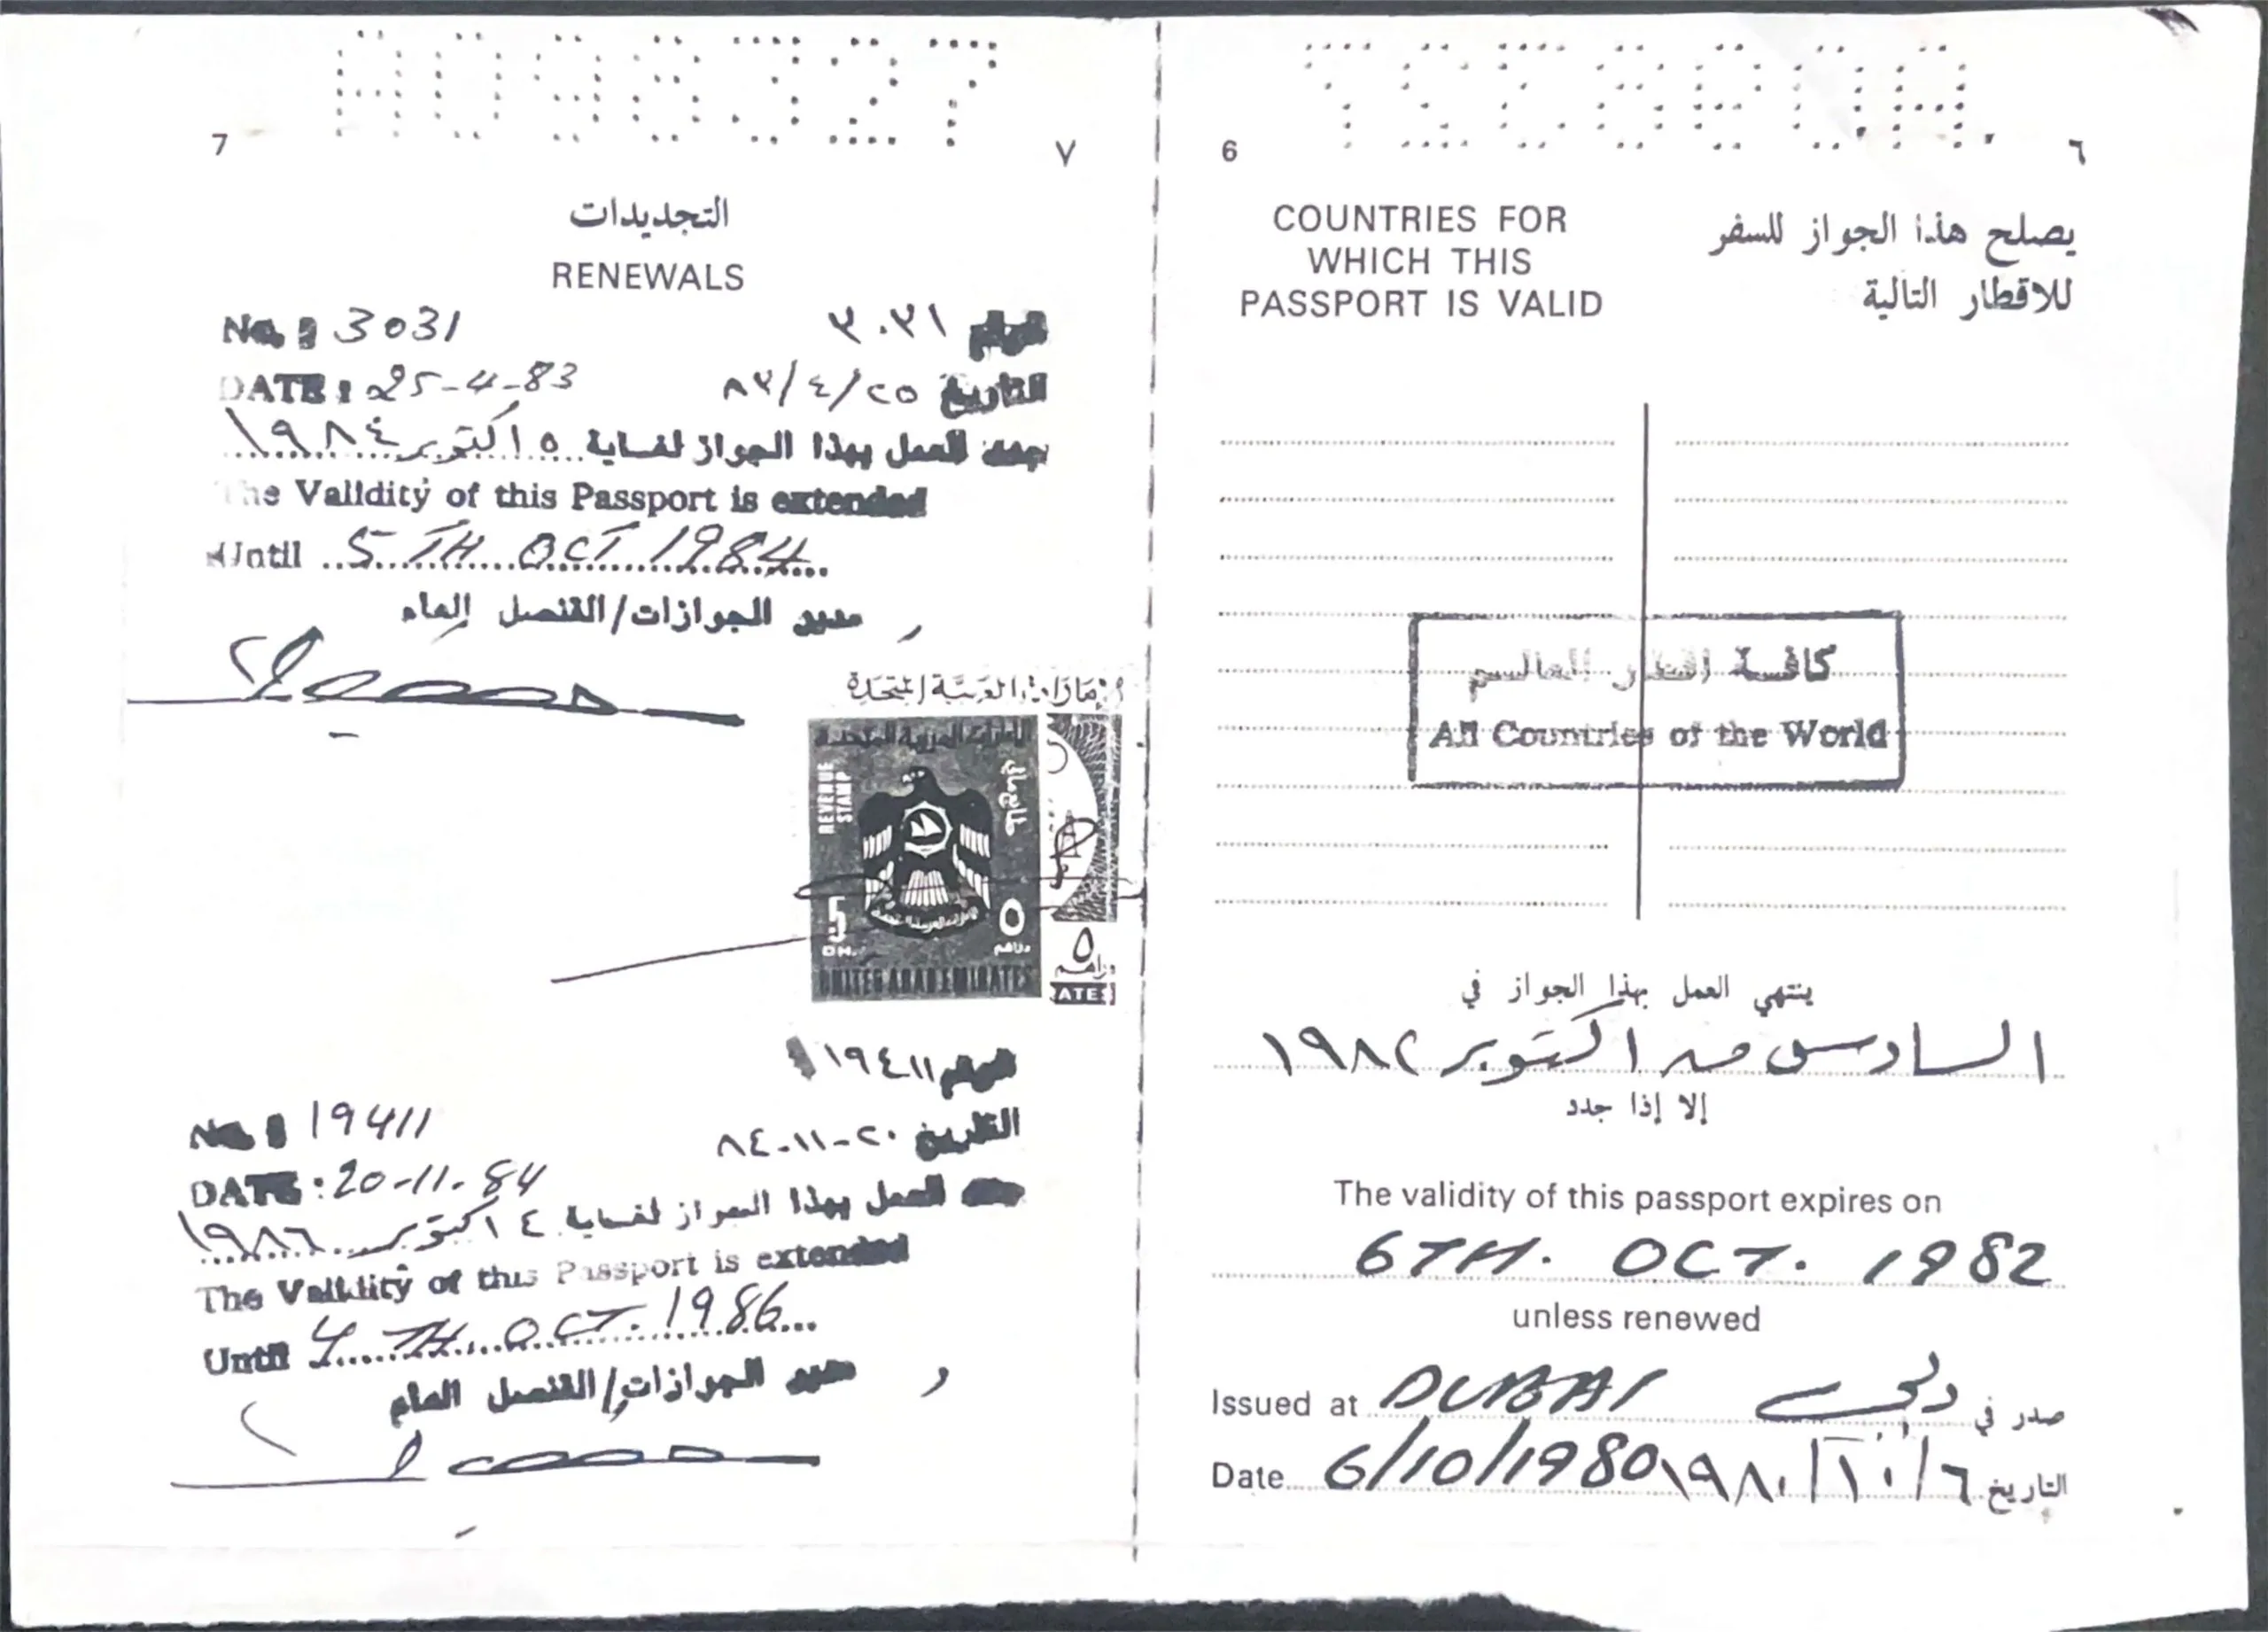 A098327
7
٧
التجديدات
RENEWALS
No. : 3031
الرقم ٣٠٣١
DATE : 25-4-83
التاريخ ٨٣/٤/٢٥
جدد العمل بهذا الجواز لغاية ٥ اكتوبر ١٩٨٤
The Validity of this Passport is extended
Until 5 TH OCT 1984
مدير الجوازات/القنصل العام
الإمارات العربية المتحدة
الامارات العربية المتحدة
REVENUE STAMP
طابع مالي
5
DH.
٥
دراهم
UNITED ARAB EMIRATES
٥
ATES
الرقم ١٩٤١١
No. : 19411
التاريخ ٢٠-١١-٨٤
DATE : 20-11-84
جدد العمل بهذا الجواز لغاية ٤ اكتوبر ١٩٨٦
The Validity of this Passport is extended
Until 4 TH. OCT. 1986
مدير الجوازات/القنصل العام
6
٦
COUNTRIES FOR
WHICH THIS
PASSPORT IS VALID
يصلح هذا الجواز للسفر
للاقطار التالية
كافة اقطار العالم
All Countries of the World
ينتهي العمل بهذا الجواز في
السادس من اكتوبر ١٩٨٢
إلا إذا جدد
The validity of this passport expires on
6TH. OCT. 1982
unless renewed
Issued at DUBAI
صدر في دبي
Date 6/10/1980
التاريخ ٦/١٠/١٩٨٠